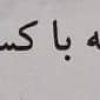 ه با کس